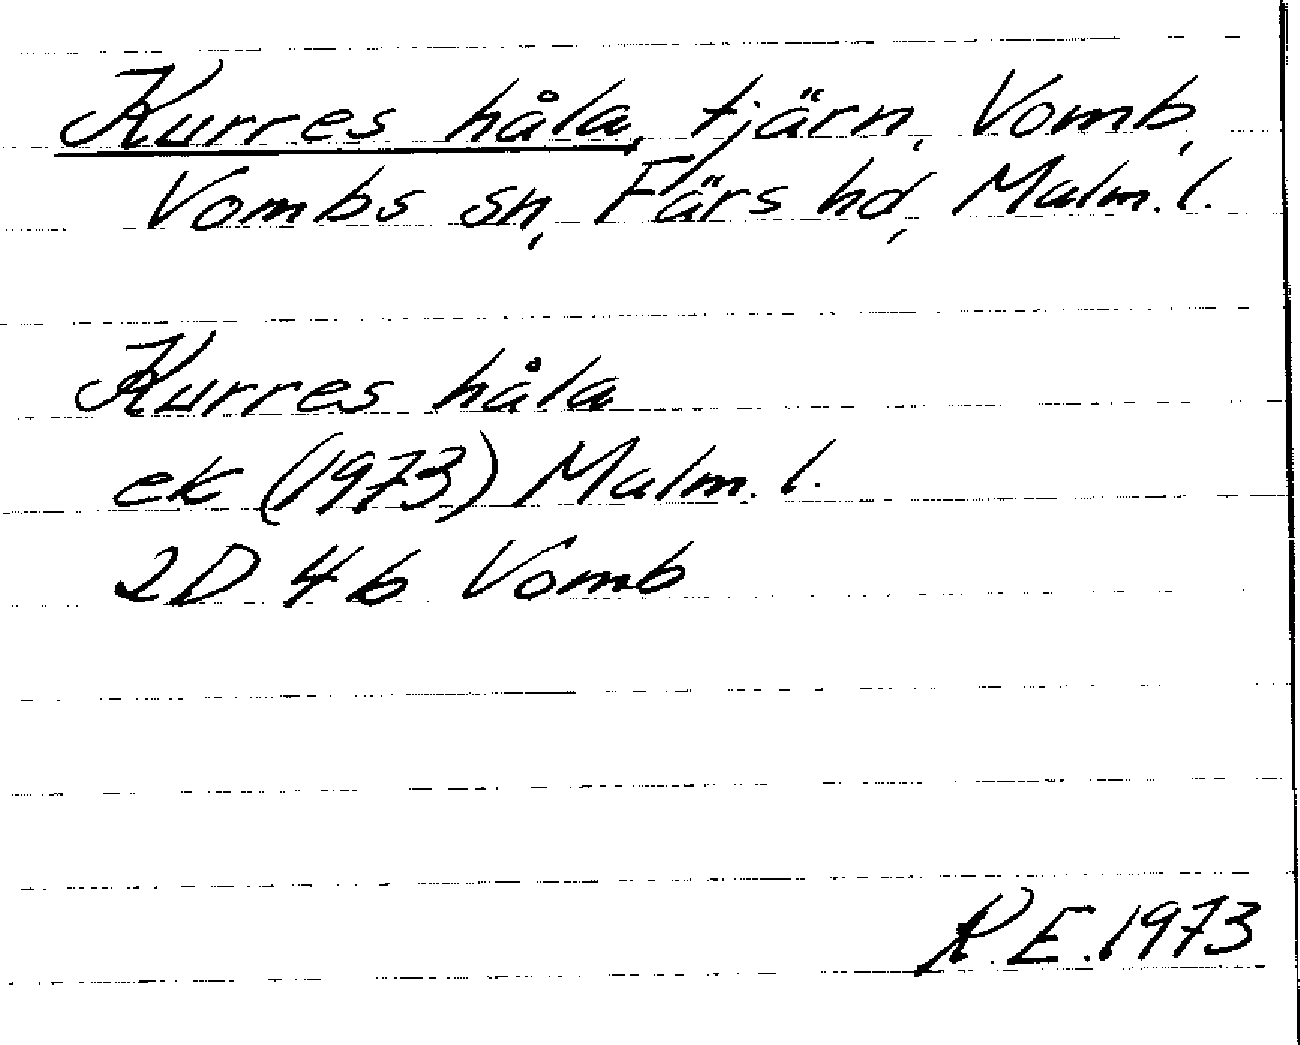 Kurres håla, tjärn, Vomb,
Vombs sn, Färs hd, Malm. l.
Kurres håla
ek (1973) Malm. l.
2D 4b Vomb
R.E. 1973